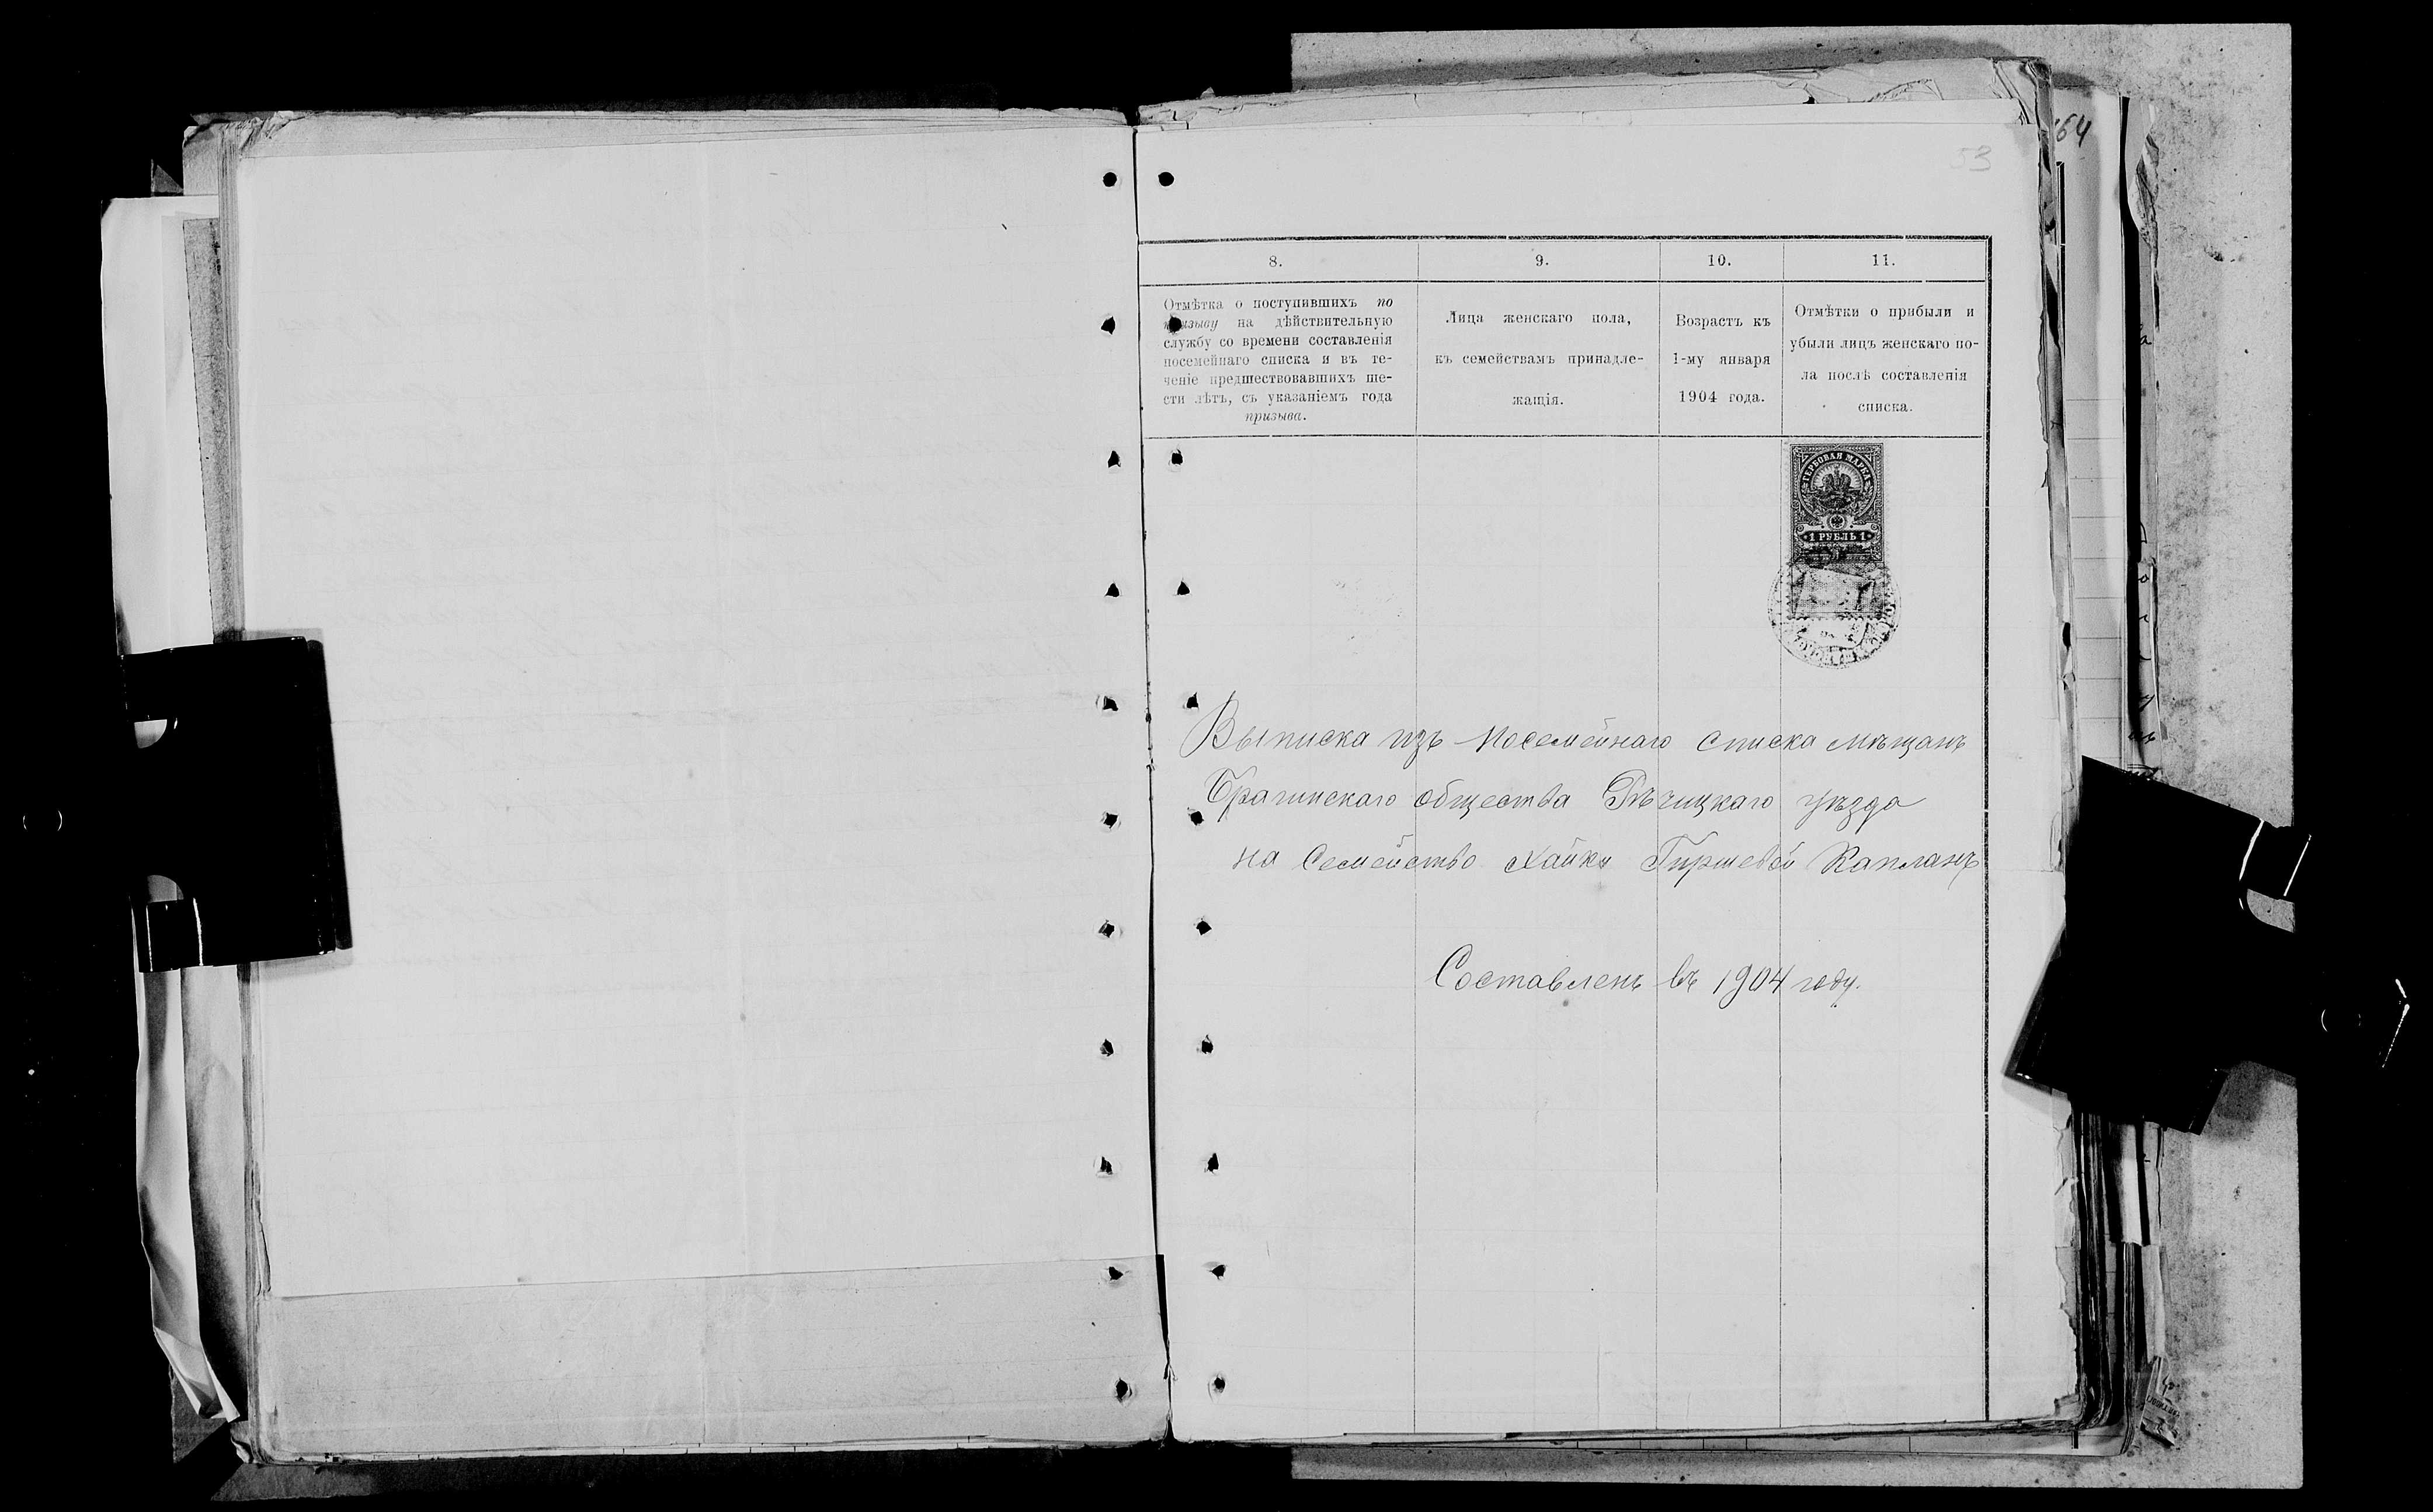 53
164
8.
9.
10.
11.
Отмѣтка о поступившихъ по
призыву на дѣйствительную
службу со времени составленія
посемейнаго списка и въ те-
ченіе предшествовавшихъ ше-
сти лѣтъ, съ указаніемъ года
призыва.
Лица женскаго пола,
къ семействамъ принадле-
жащія.
Возрастъ къ
1-му января
1904 года.
Отмѣтки о прибыли и
убыли лицъ женскаго по-
ла послѣ составленія
списка.
ГЕРБОВАЯ МАРКА
1 РУБЛЬ 1
Выписка изъ посемейнаго списка мѣщанъ
Брагинскаго общества Рѣчицкаго уѣзда
на семейство Хайки Гиршевой Капланъ
Составленъ въ 1904 году.